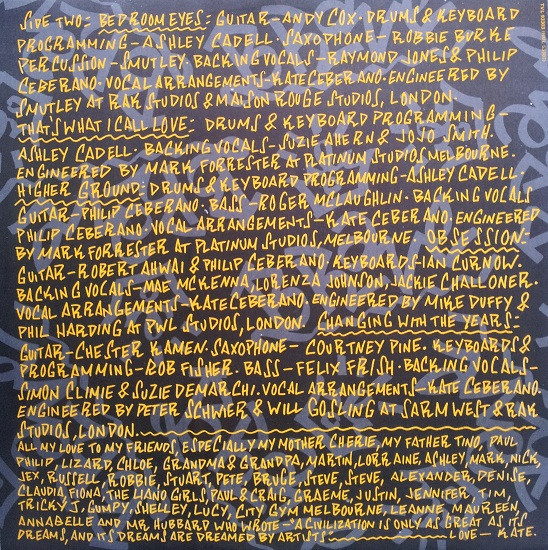 SIDE TWO: BEDROOM EYES: GUITAR-ANDY COX. DRUMS & KEYBOARD
PROGRAMMING-ASHLEY CADELL. SAXOPHONE- ROBBIE BURKE
PERCUSSION-SMUTLEY. BACKING VOCALS-RAYMOND JONES & PHILIP
CEBERANO. VOCAL ARRANGEMENTS-KATE CEBERANO. ENGINEERED BY
SMUTLEY AT RAK STUDIOS & MAISON ROUGE STUDIOS, LONDON.
THAT'S WHAT I CALL LOVE: DRUMS & KEYBOARD PROGRAMMING-
ASHLEY CADELL. BACKING VOCALS-SUZIE AHERN & JOJO SMITH.
ENGINEERED BY MARK FORRESTER AT PLATINUM STUDIOS MELBOURNE.
HIGHER GROUND: DRUMS & KEYBOARD PROGRAMMING-ASHLEY CADELL.
GUITAR-PHILIP CEBERANO. BASS-ROGER MCLAUGHLIN. BACKING VOCALS
PHILIP CEBERANO. VOCAL ARRANGEMENTS-KATE CEBERANO. ENGINEERED
BY MARK FORRESTER AT PLATINUM STUDIOS, MELBOURNE. OBSESSION:
GUITAR-ROBERT AHWAI & PHILIP CEBERANO. KEYBOARDS-IAN CURNOW.
BACKING VOCALS-MAE MCKENNA, LORENZA JOHNSON, JACKIE CHALLONER.
VOCAL ARRANGEMENTS-KATE CEBERANO. ENGINEERED BY MIKE DUFFY &
PHIL HARDING AT PWL STUDIOS, LONDON. CHANGING WITH THE YEARS:
GUITAR-CHESTER KAMEN. SAXOPHONE- COURTNEY PINE. KEYBOARDS &
PROGRAMMING-ROB FISHER. BASS-FELIX FRISH. BACKING VOCALS-
SIMON CLIMIE & SUZIE DEMARCHI. VOCAL ARRANGEMENTS-KATE CEBERANO.
ENGINEERED BY PETER SCHWIER & WILL GOSLING AT SARM WEST & RAK
STUDIOS, LONDON.
ALL MY LOVE TO MY FRIENDS, ESPECIALLY MY MOTHER CHERIE, MY FATHER TINO, PAUL
PHILIP, LIZARD, CHLOE, GRANDMA & GRANDPA, MARTIN, LORRAINE, ASHLEY, MARK, NICK,
JEX, RUSSELL, ROBBIE, STUART, PETE, BRUCE, STEVE, STEVE, ALEXANDER, DENISE,
CLAUDIA, FIONA, THE LIANO GIRLS, PAUL & CRAIG, GRAEME, JUSTIN, JENNIFER, TIM,
TRICKY J, GUMPY, SHELLEY, LUCY, CITY GYM MELBOURNE, LEANNE, MAUREEN,
ANNABELLE AND MR. HUBBARD WHO WROTE-"A CIVILIZATION IS ONLY AS GREAT AS ITS
DREAMS, AND ITS DREAMS ARE DREAMED BY ARTISTS" LOVE- KATE.